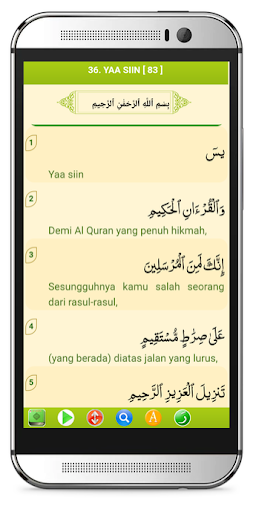 36. YAA SIIN [ 83 ]
بِسْمِ اللَّهِ الرَّحْمَٰنِ الرَّحِيمِ
1
يسٓ
Yaa siin
2
وَالْقُرْءَانِ الْحَكِيمِ
Demi Al Quran yang penuh hikmah,
3
إِنَّكَ لَمِنَ الْمُرْسَلِينَ
Sesungguhnya kamu salah seorang
dari rasul-rasul,
4
عَلَىٰ صِرَٰطٍ مُّسْتَقِيمٍ
(yang berada) diatas jalan yang lurus,
5
تَنزِيلَ الْعَزِيزِ الرَّحِيمِ
A